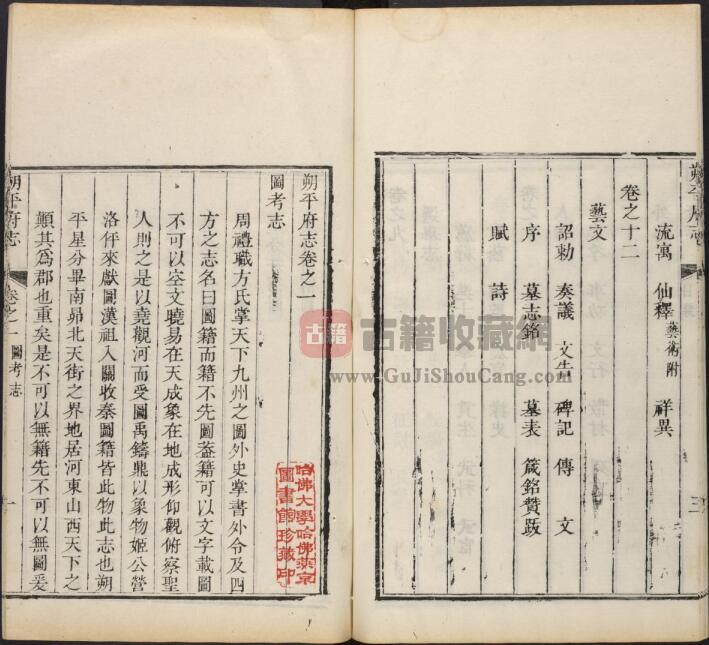 朔平府志
流寓 仙釋藝術附 祥異
卷之十二
藝文
詔勅 奏議 文告 碑記 傳 文
序 墓志銘 墓表 箴銘贊跋
賦 詩
三
朔平府志卷之一
圖考志
周禮職方氏掌天下九州之圖外史掌書外令及四
方之志名曰圖籍而籍不先圖葢籍可以文字載圖
不可以空文曉易在天成象在地成形仰觀俯察聖
人則之是以堯觀河而受圖禹鑄鼎以象物姬公營
洛伻來獻圖漢祖入關收秦圖籍皆此物此志也朔
平星分畢南昴北天街之界地居河東山西天下之
顛其爲郡也重矣是不可以無籍先不可以無圖爰
朔平府志 卷之一 圖考志 一
哈佛大學哈佛燕京
圖書館珍藏印
古籍 古籍收藏網
www.GuJiShouCang.com